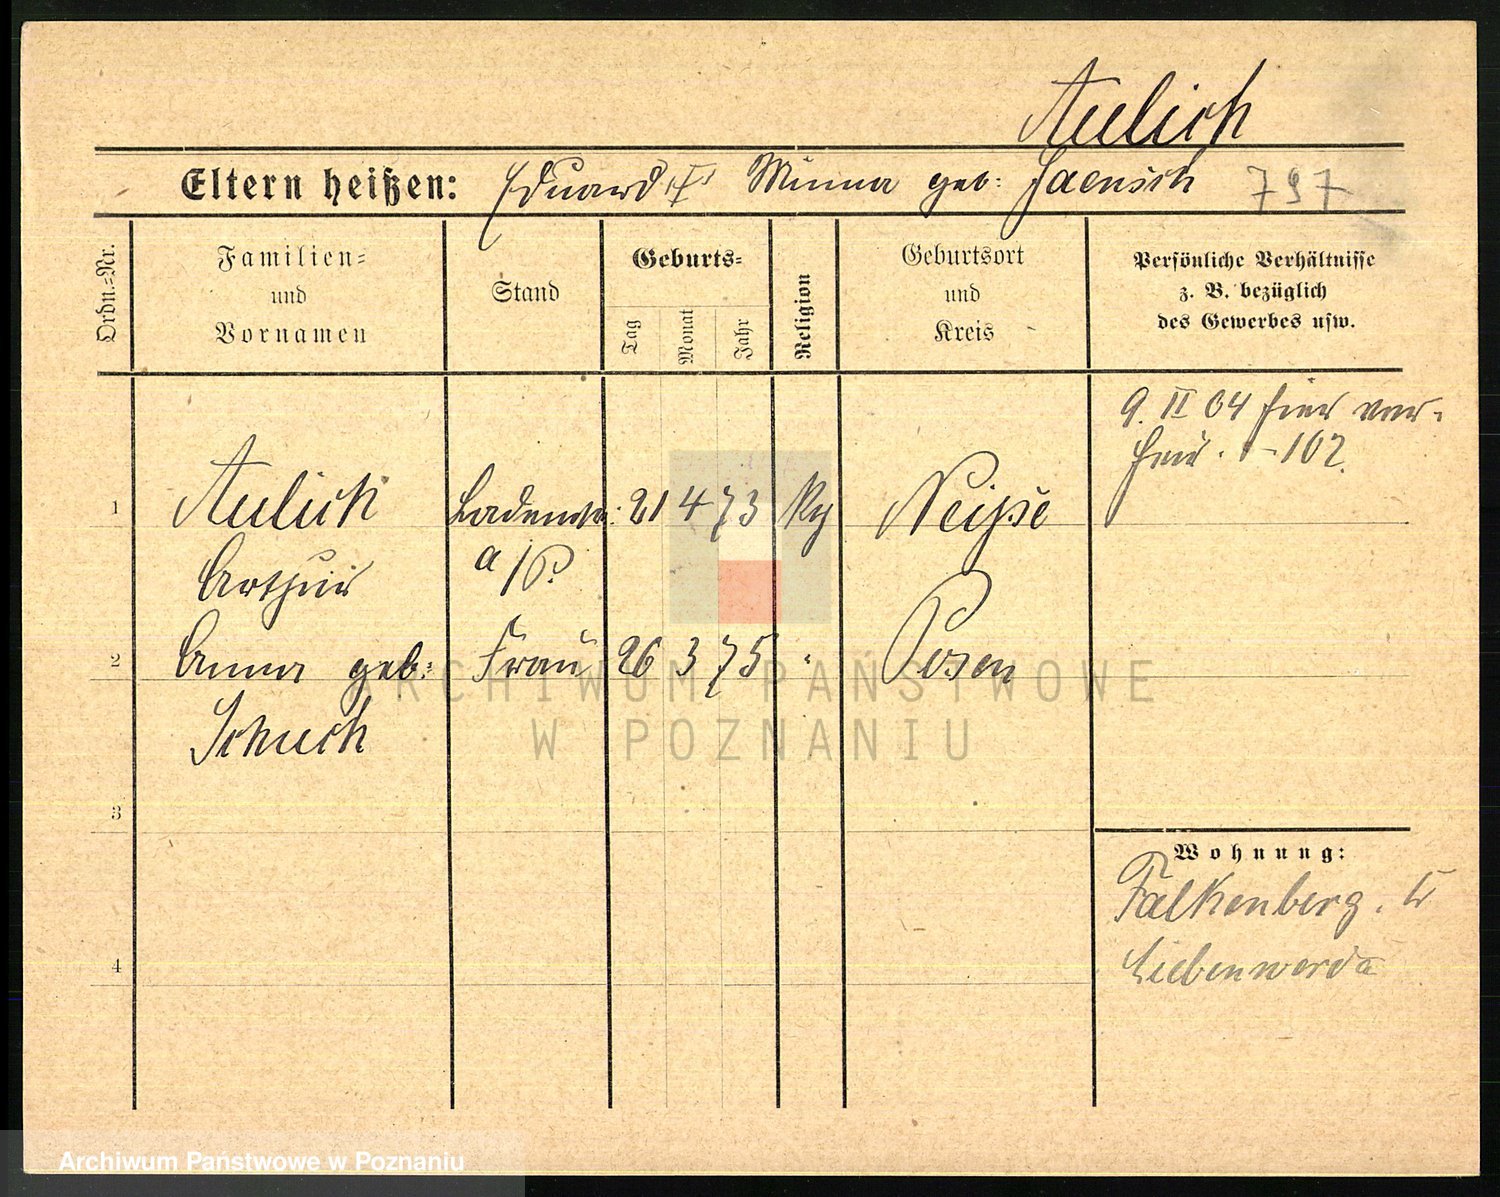 Aulich
Eltern heißen: Eduard u. Minna geb: Jaensch 797
Ordn.=Nr.
Familien=
und
Vornamen
Stand
Geburts=
Tag
Monat
Jahr
Religion
Geburtsort
und
Kreis
Persönliche Verhältnisse
z. B. bezüglich
des Gewerbes usw.
9. II 04 hier ver=
heir. 102.
1 Aulich 21 4 73 Neisse
Arthur a/D.
2 Anna geb: Frau 26 3 75 " Posen
Schuch
3
Wohnung:
Falkenberg.
Liebenwerda
4
ARCHIWUM PAŃSTWOWE
W POZNANIU
Archiwum Państwowe w Poznaniu